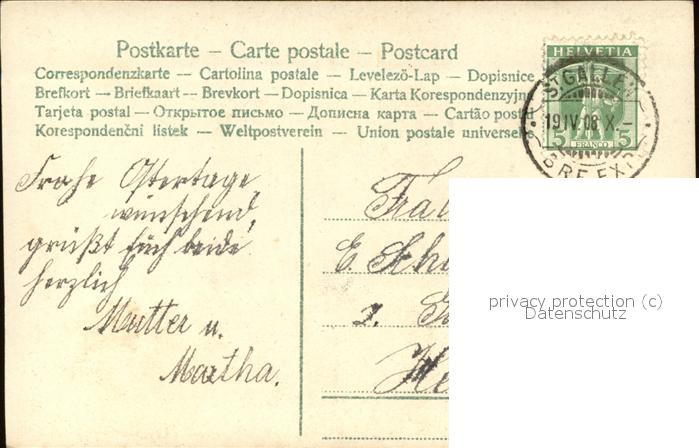 Postkarte – Carte postale – Postcard
Correspondenzkarte — Cartolina postale — Levelező-Lap — Dopisnice
Brefkort — Briefkaart — Brevkort — Dopisnica — Karta Korespondenzyjna
Tarjeta postal — Открытое письмо — Дописна карта — Cartão postal
Korespondenční listek — Weltpostverein — Union postale universelle
HELVETIA
ST. GALLEN
19 IV 08 X –
5 5
FRANCO
BRF. EXP.
Frohe Ostertage
wünschend,
grüßt Euch beide
herzlich
Mutter u.
Martha.
E. Sch
He
privacy protection (c)
Datenschutz